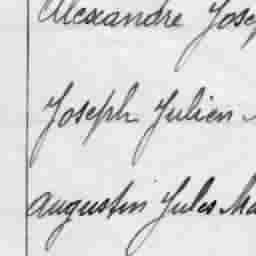 Alexandre Josep
Joseph Julien
Augustin Jules Ma